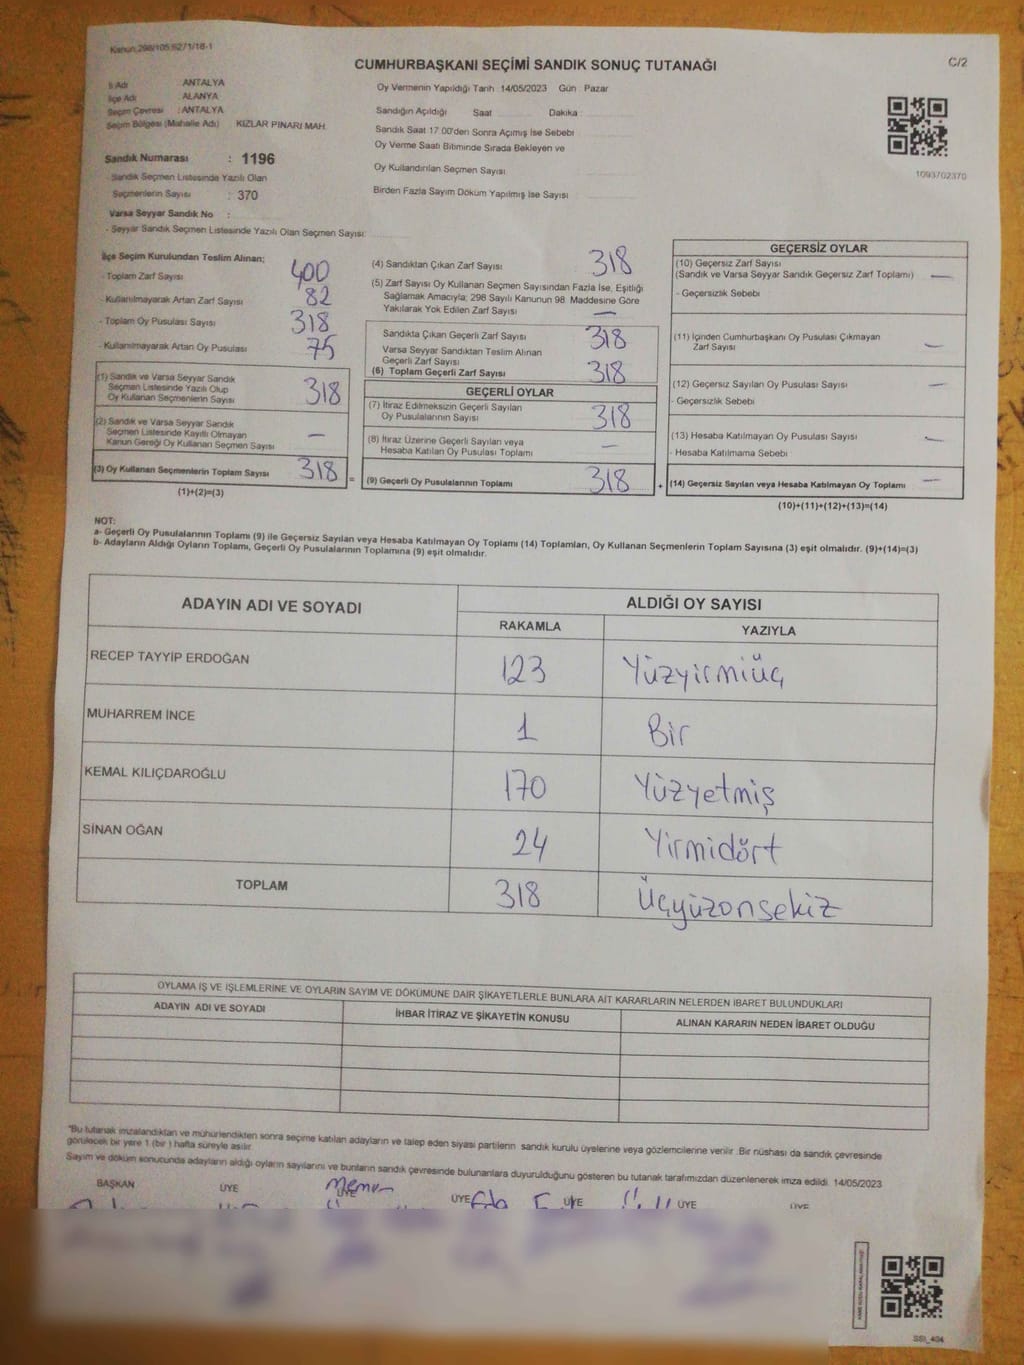 Kanun 298/105,6271/18-1
CUMHURBAŞKANI SEÇİMİ SANDIK SONUÇ TUTANAĞI
C/2
İl Adı ANTALYA
İlçe Adı : ALANYA
Seçim Çevresi : ANTALYA
Seçim Bölgesi (Mahalle Adı) KIZLAR PINARI MAH.
Sandık Numarası : 1196
- Sandık Seçmen Listesinde Yazılı Olan
Seçmenlerin Sayısı : 370
Varsa Seyyar Sandık No :
- Seyyar Sandık Seçmen Listesinde Yazılı Olan Seçmen Sayısı:
Oy Vermenin Yapıldığı Tarih 14/05/2023 Gün Pazar
Sandığın Açıldığı Saat Dakika :
Sandık Saat 17.00'den Sonra Açımış İse Sebebi
Oy Verme Saati Bitiminde Sırada Bekleyen ve
Oy Kullandırılan Seçmen Sayısı
Birden Fazla Sayım Döküm Yapılmış İse Sayısı
1093702370
İlçe Seçim Kurulundan Teslim Alınan;
- Toplam Zarf Sayısı 400
- Kullanılmayarak Artan Zarf Sayısı 82
- Toplam Oy Pusulası Sayısı 318
- Kullanılmayarak Artan Oy Pusulası 75
(1) Sandık ve Varsa Seyyar Sandık
Seçmen Listesinde Yazılı Olup
Oy Kullanan Seçmenlerin Sayısı 318
(2) Sandık ve Varsa Seyyar Sandık
Seçmen Listesinde Kayıtlı Olmayan
Kanun Gereği Oy Kullanan Seçmen Sayısı —
(3) Oy Kullanan Seçmenlerin Toplam Sayısı 318 =
(1)+(2)=(3)
(4) Sandıktan Çıkan Zarf Sayısı 318
(5) Zarf Sayısı Oy Kullanan Seçmen Sayısından Fazla İse, Eşitliği
Sağlamak Amacıyla; 298 Sayılı Kanunun 98. Maddesine Göre
Yakılarak Yok Edilen Zarf Sayısı —
Sandıkta Çıkan Geçerli Zarf Sayısı 318
Varsa Seyyar Sandıktan Teslim Alınan
Geçerli Zarf Sayısı
(6) Toplam Geçerli Zarf Sayısı 318
GEÇERLİ OYLAR
(7) İtiraz Edilmeksizin Geçerli Sayılan
Oy Pusulalarının Sayısı 318
(8) İtiraz Üzerine Geçerli Sayılan veya
Hesaba Katılan Oy Pusulası Toplamı —
(9) Geçerli Oy Pusulalarının Toplamı 318 +
GEÇERSİZ OYLAR
(10) Geçersiz Zarf Sayısı
(Sandık ve Varsa Seyyar Sandık Geçersiz Zarf Toplamı) —
- Geçersizlik Sebebi
(11) İçinden Cumhurbaşkanı Oy Pusulası Çıkmayan
Zarf Sayısı —
(12) Geçersiz Sayılan Oy Pusulası Sayısı —
- Geçersizlik Sebebi
(13) Hesaba Katılmayan Oy Pusulası Sayısı —
- Hesaba Katılmama Sebebi
(14) Geçersiz Sayılan veya Hesaba Katılmayan Oy Toplamı —
(10)+(11)+(12)+(13)=(14)
NOT:
a- Geçerli Oy Pusulalarının Toplamı (9) ile Geçersiz Sayılan veya Hesaba Katılmayan Oy Toplamı (14) Toplamları, Oy Kullanan Seçmenlerin Toplam Sayısına (3) eşit olmalıdır. (9)+(14)=(3)
b- Adayların Aldığı Oyların Toplamı, Geçerli Oy Pusulalarının Toplamına (9) eşit olmalıdır.
ADAYIN ADI VE SOYADI ALDIĞI OY SAYISI
RAKAMLA YAZIYLA
RECEP TAYYİP ERDOĞAN 123 Yüzyirmiüç
MUHARREM İNCE 1 Bir
KEMAL KILIÇDAROĞLU 170 Yüzyetmiş
SİNAN OĞAN 24 Yirmidört
TOPLAM 318 Üçyüzonsekiz
OYLAMA İŞ VE İŞLEMLERİNE VE OYLARIN SAYIM VE DÖKÜMÜNE DAİR ŞİKAYETLERLE BUNLARA AİT KARARLARIN NELERDEN İBARET BULUNDUKLARI
ADAYIN ADI VE SOYADI İHBAR İTİRAZ VE ŞİKAYETİN KONUSU ALINAN KARARIN NEDEN İBARET OLDUĞU
"Bu tutanak imzalandıktan ve mühürlendikten sonra seçime katılan adayların ve talep eden siyasi partilerin sandık kurulu üyelerine veya gözlemcilerine verilir. Bir nüshası da sandık çevresinde
görülecek bir yere 1 (bir ) hafta süreyle asılır.
Sayım ve döküm sonucunda adayların aldığı oyların sayılarını ve bunların sandık çevresinde bulunanlara duyurulduğunu gösteren bu tutanak tarafımızdan düzenlenerek imza edildi. 14/05/2023
BAŞKAN ÜYE ÜYE ÜYE ÜYE ÜYE ÜYE
SSI_404